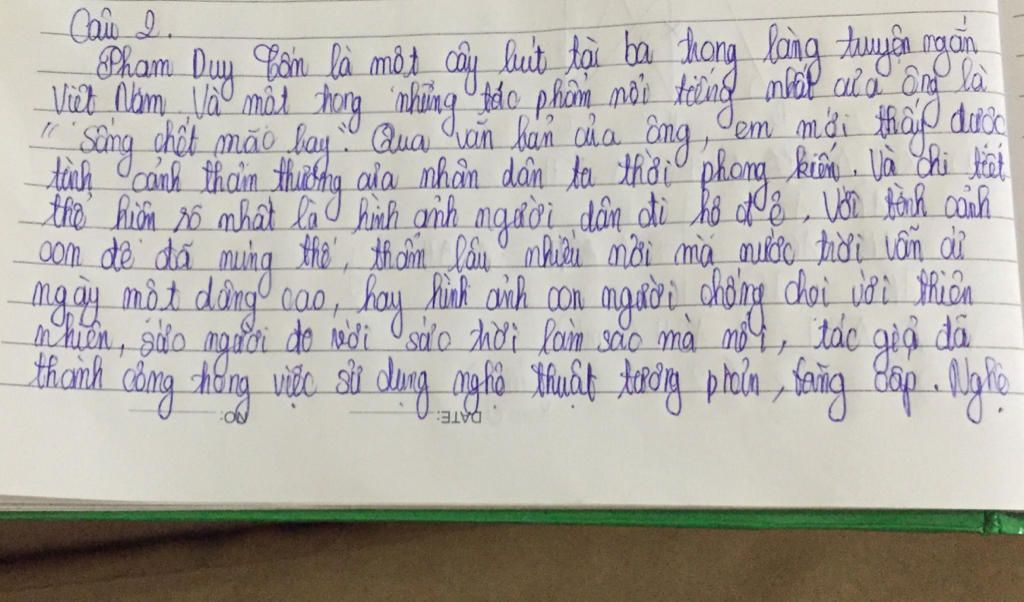 Câu 2.
Phạm Duy Tốn là một cây bút tài ba trong làng truyện ngắn
Việt Nam. Và một trong những tác phẩm nổi tiếng nhất của ông là
"Sống chết mặc bay". Qua văn bản của ông, em mới thấy được
tình cảnh thảm thương của nhân dân ta thời phong kiến. Và chi tiết
thể hiện rõ nhất là hình ảnh người dân đi hộ đê, Với tình cảnh
con đê đã núng thế, thẩm lậu nhiều nơi mà nước trời vẫn cứ
ngày một dâng cao, hay hình ảnh con người chống chọi với thiên
nhiên, sức người đo với sức trời làm sao mà nổi, tác giả đã
thành công trong việc sử dụng nghệ thuật tương phản, tăng cấp. Nghệ
NO:
DATE: